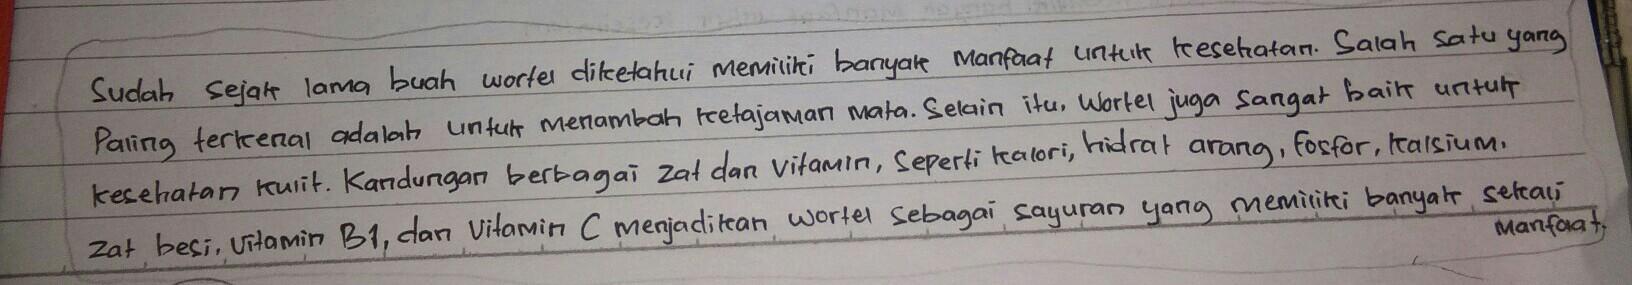 Sudah sejak lama buah wortel diketahui memiliki banyak Manfaat untuk kesehatan. Salah satu yang
Paling terkenal adalah untuk menambah ketajaman mata. Selain itu, Wortel juga sangat baik untuk
kesehatan kulit. Kandungan berbagai zat dan vitamin, Seperti kalori, hidrat arang, fosfor, kalsium,
zat besi, Vitamin B1, dan Vitamin C menjadikan wortel sebagai sayuran yang memiliki banyak sekali
Manfaat.